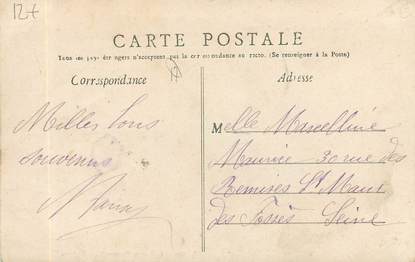 12+
CARTE POSTALE
Tous les pays étrangers n'acceptent pas la correspondance au recto. (Se renseigner à la Poste)
Correspondance
Adresse
Milles bons
souvenirs
Melle Marcelline
Maurice 30 rue des
Remises St Maur
des Fossés Seine